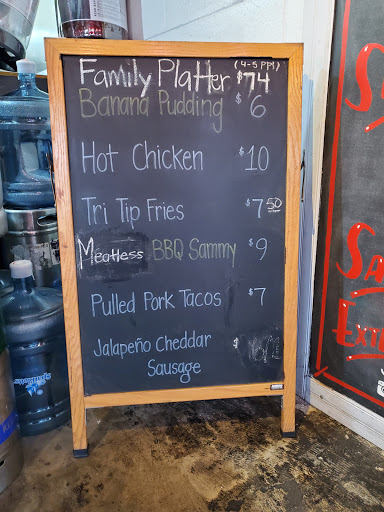 Family Platter (4-5 PPl) $74
Banana Pudding $6
Hot Chicken $10
Tri Tip Fries $7.50
Meatless BBQ Sammy $9
Pulled Pork Tacos $7
Jalapeño Cheddar $
Sausage